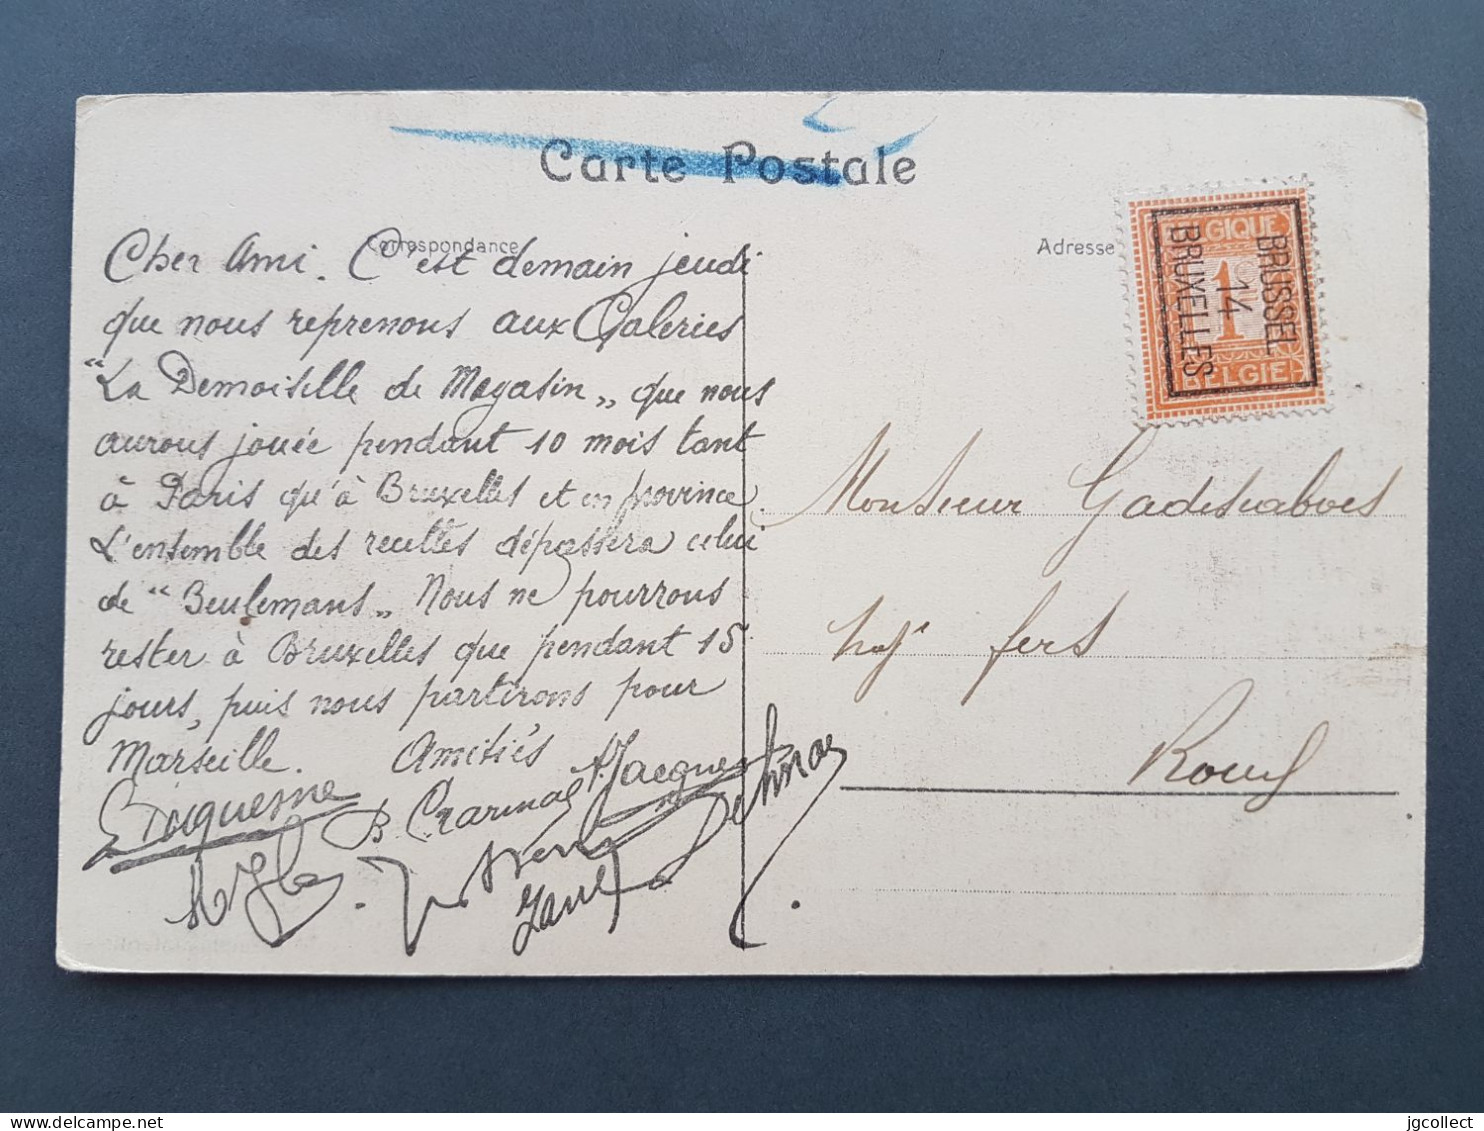 Carte Postale
Correspondance
Adresse
Cher Ami. C'est demain jeudi
que nous reprenons aux Galeries
"La Demoiselle de Magasin" que nous
aurons jouée pendant 10 mois tant
à Paris qu'à Bruxelles et en province.
L'ensemble des recettes dépassera celui
de "Beulemans" Nous ne pourrons
rester à Bruxelles que pendant 15
jours, puis nous partirons pour
Marseille. Amitiés
Duquesne
Jacque
Delmas
BELGIQUE
1
BELGIE
BRUSSEL
14
BRUXELLES
Monsieur
fers
jgcollect